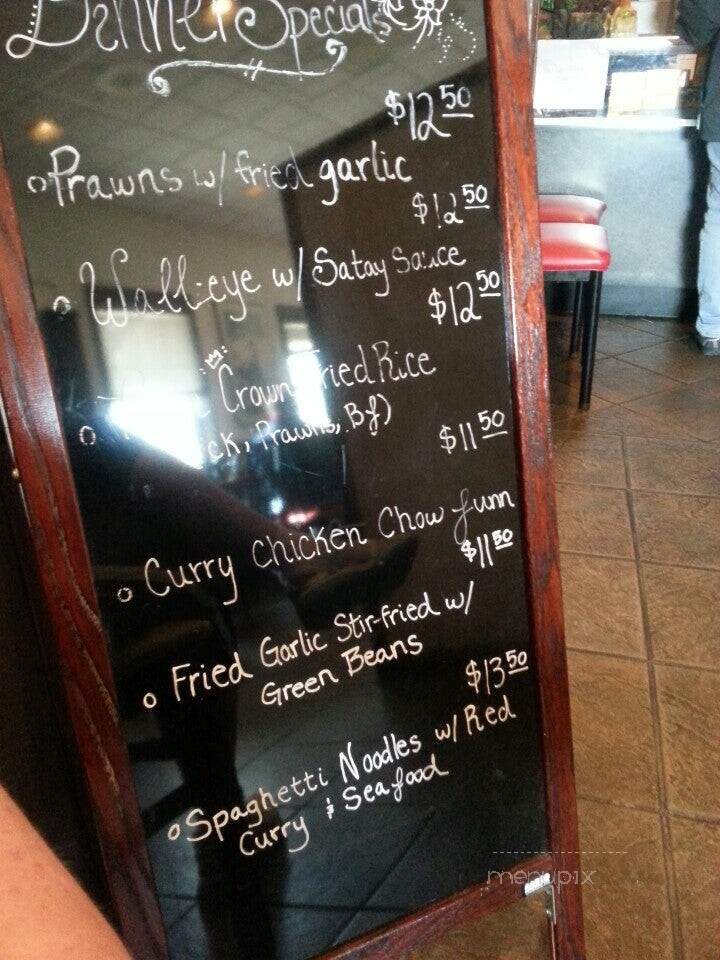 Dinner Specials
$12 50
Prawns w/ fried garlic
$12 50
Wall-eye w/ Satay Sauce
$12 50
Crown Fried Rice
Prawns, Bf)
$11 50
Curry Chicken Chow funn
$11 50
Fried Garlic Stir-fried w/
Green Beans
$13 50
Spaghetti Noodles w/ Red
Curry & Seafood
menupix